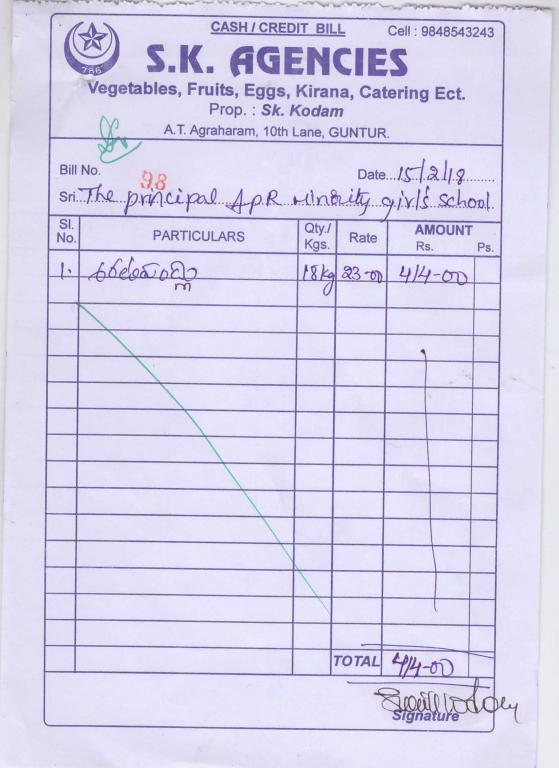 CASH / CREDIT BILL
Cell : 9848543243
786
S.K. AGENCIES
Vegetables, Fruits, Eggs, Kirana, Catering Ect.
Prop. : Sk. Kodam
A.T. Agraharam, 10th Lane, GUNTUR.
Bill No. 98
Date 15/2/18
Sri The principal APR Minority girl's school
Sl. No. PARTICULARS Qty./ Kgs. Rate AMOUNT Rs. Ps.
1. 18kg 23-00 414-00
TOTAL 414-00
Signature